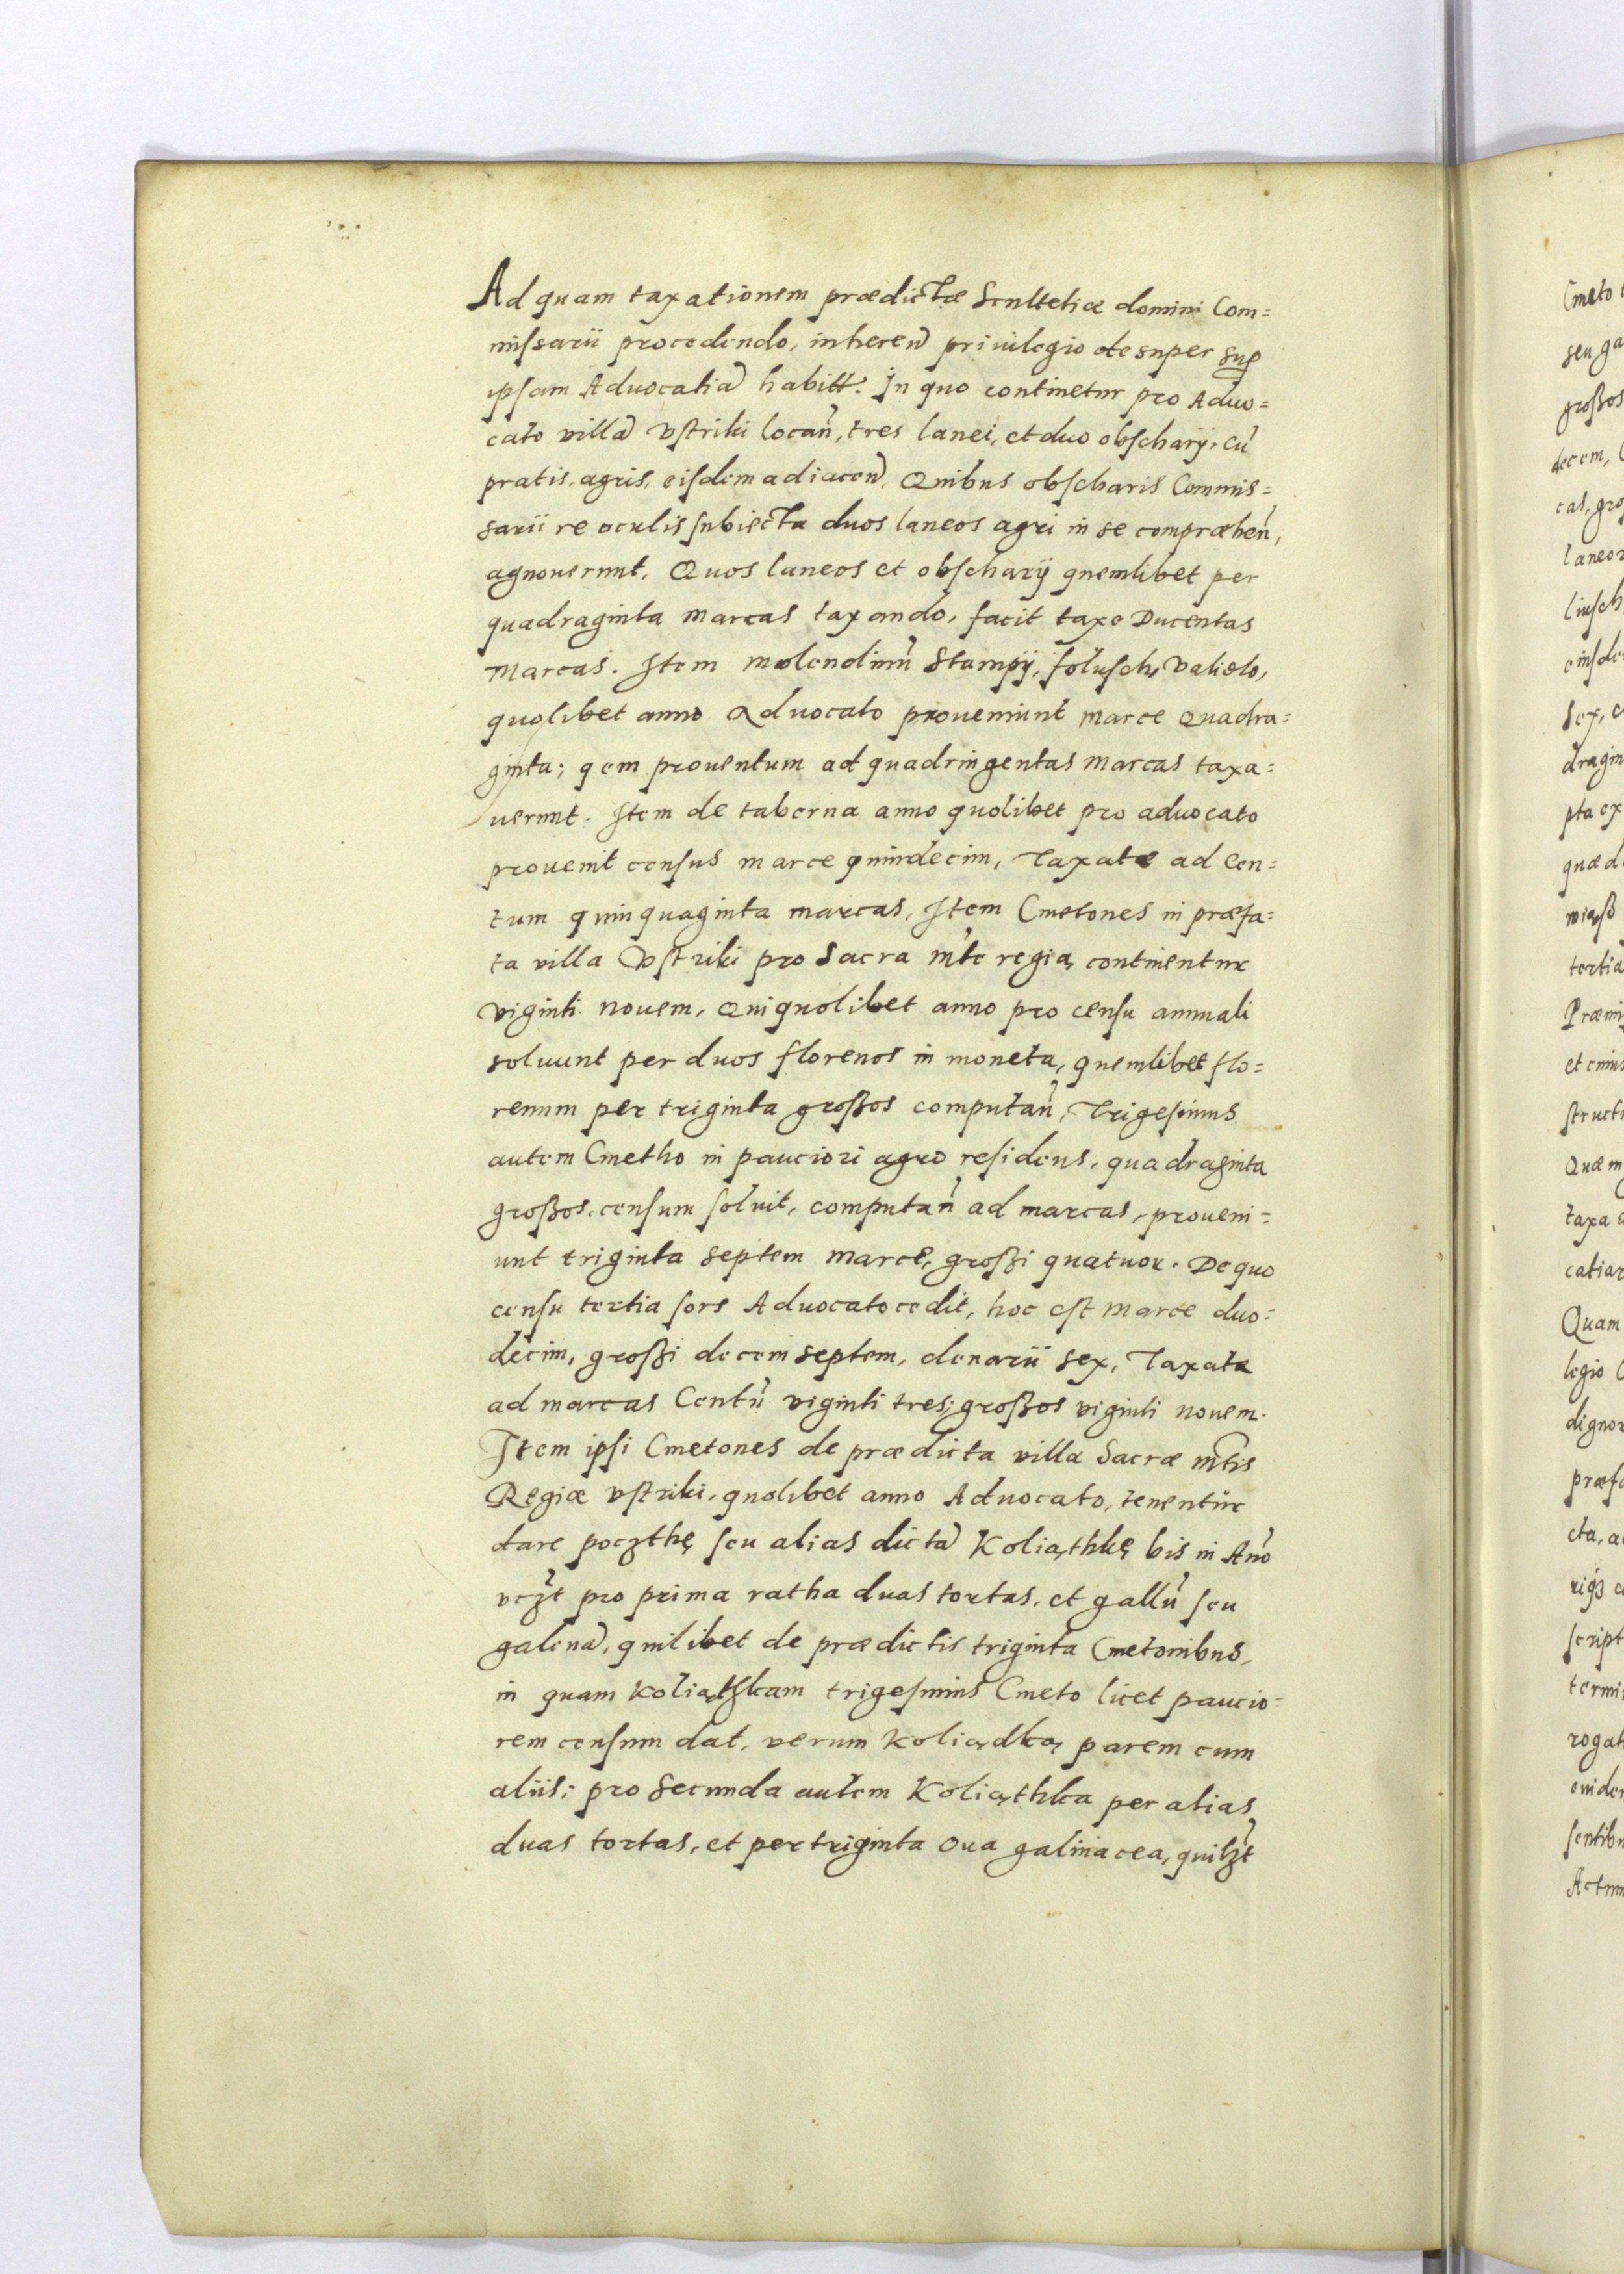 Ad quam taxationem prædictæ Scultetiæ domini Com=
missarii procedendo, inheren̄ priuilegio desuper sup
ipsam Aduocatiā habitt. In quo continetur pro Aduo=
cato villā Vstriki locan̄, tres lanei, et duo obscharÿ, cū
pratis, agris, eisdem adiacen̄. Quibus obscharis Commis=
sarii re oculis subiecta duos laneos agri in se compræhen̄,
agnouerunt. Quos laneos et obscharÿ quemlibet per
quadraginta marcas taxando, facit taxe Ducentas
Marcas. Item molendinū Stampÿ, folusch, Valiolo,
quolibet anno Aduocato proueniunt marce quadra=
ginta; qem prouentum ad quadringentas marcas taxa=
uerunt. Item de taberna anno quolibet pro aduocato
prouenit census marce quindecim, Taxate ad Cen=
tum quinquaginta marcas, Item Cmetones in præfa=
ta villa Vstriki pro Sacra mte regia, continentur
viginti nouem, qui quolibet anno pro censu annuali
soluunt per duos florenos in moneta, quemlibet flo=
renum per triginta großos computan̄, Trigesimus
autem Cmetho in pauciori agro residens, quadraginta
großos, censum soluit, computan̄ ad marcas, proueni=
unt triginta septem marce, großi quatuor. De quo
censu tertia sors Aduocato cedit, hoc est marce duo=
decim, großi decem septem, denarii sex, Taxata
ad marcas Centū viginti tres; großos viginti nouem.
Item ipsi Cmetones de prædicta villa Sacræ mtis
Regiæ Vstriki, quolibet anno Aduocato, tenentur
dare poczthę seu alias dictā Koliąthkę bis in Anō
vczt pro prima ratha duas tortas, et gallū seu
galenā, quilibet de prædictis triginta Cmetonibus,
in quam Koliątzkam trigesimus Cmeto licet paucio=
rem censum dat, verum Koliądką parem cum
aliis; pro secunda autem Koliąthka per alias
duas tortas, et per triginta oua galinacea, quilzt